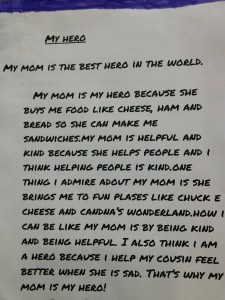 My hero
My mom is the best hero in the world.
My mom is my hero because she
buys me food like cheese, ham and
bread so she can make me
sandwiches.my mom is helpful and
kind because she helps people and i
think helping people is kind.one
thing i admire adout my mom is she
brings me to fun plases like chuck e
cheese and candna's wonderland.how i
can be like my mom is by being kind
and being helpful. I also think i am
a hero because i help my cousin feel
better when she is sad. That's why my
mom is my hero!